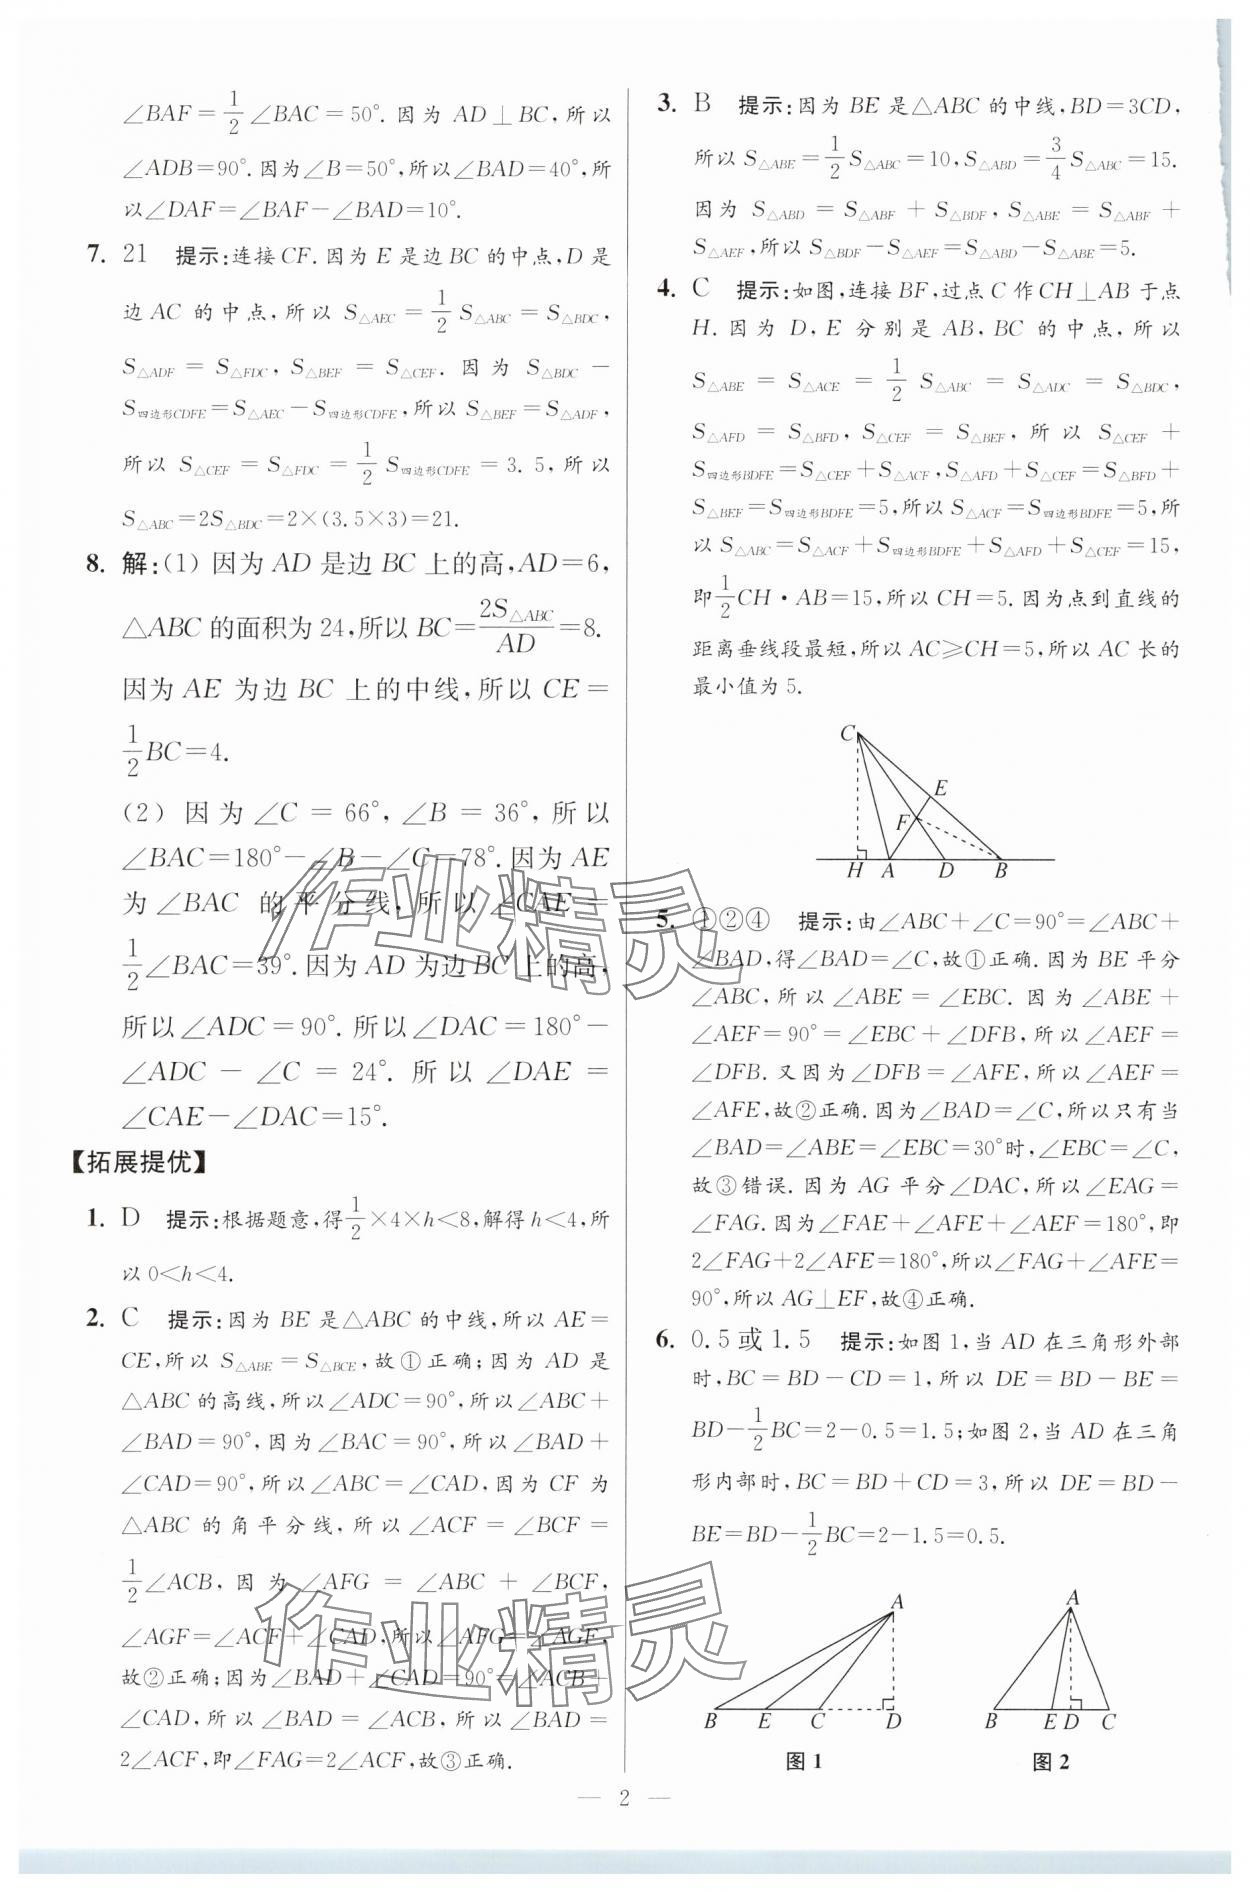 ∠BAF=1/2∠BAC=50°.因为 AD⊥BC,所以
∠ADB=90°.因为∠B=50°,所以∠BAD=40°,所
以∠DAF=∠BAF-∠BAD=10°.
7. 21 提示:连接CF.因为 E 是边 BC 的中点,D 是
边 AC 的中点,所以 S△AEC=1/2 S△ABC=S△BDC,
S△ADF=S△FDC,S△BEF=S△CEF.因为 S△BDC-
S四边形CDFE=S△AEC-S四边形CDFE,所以 S△BEF=S△ADF,
所以 S△CEF=S△FDC=1/2 S四边形CDFE=3.5,所以
S△ABC=2S△BDC=2×(3.5×3)=21.
8. 解:(1)因为 AD 是边 BC 上的高,AD=6,
△ABC 的面积为 24,所以 BC=2S△ABC/AD=8.
因为 AE 为边 BC 上的中线,所以 CE=
1/2BC=4.
(2) 因为∠C=66°,∠B=36°,所以
∠BAC=180°-∠B-∠C=78°.因为 AE
为∠BAC 的平分线,所以∠CAE=
1/2∠BAC=39°.因为 AD 为边 BC 上的高,
所以∠ADC=90°.所以∠DAC=180°-
∠ADC-∠C=24°.所以∠DAE=
∠CAE-∠DAC=15°.
【拓展提优】
1. D 提示:根据题意,得1/2×4×h<8,解得 h<4,所
以 0<h<4.
2. C 提示:因为 BE 是△ABC 的中线,所以 AE=
CE,所以 S△ABE=S△BCE,故①正确;因为 AD 是
△ABC 的高线,所以∠ADC=90°,所以∠ABC+
∠BAD=90°,因为∠BAC=90°,所以∠BAD+
∠CAD=90°,所以∠ABC=∠CAD,因为 CF 为
△ABC 的角平分线,所以∠ACF=∠BCF=
1/2∠ACB,因为∠AFG=∠ABC+∠BCF,
∠AGF=∠ACF+∠CAD,所以∠AFG=∠AGF,
故②正确;因为∠BAD+∠CAD=90°=∠ACB+
∠CAD,所以∠BAD=∠ACB,所以∠BAD=
2∠ACF,即∠FAG=2∠ACF,故③正确.
3. B 提示:因为 BE 是△ABC 的中线,BD=3CD,
所以 S△ABE=1/2 S△ABC=10,S△ABD=3/4 S△ABC=15.
因为 S△ABD=S△ABF+S△BDF,S△ABE=S△ABF+
S△AEF,所以 S△BDF-S△AEF=S△ABD-S△ABE=5.
4. C 提示:如图,连接 BF,过点 C 作 CH⊥AB 于点
H.因为 D,E 分别是 AB,BC 的中点,所以
S△ABE=S△ACE=1/2 S△ABC=S△ADC=S△BDC,
S△AFD=S△BFD,S△CEF=S△BEF,所以 S△CEF+
S四边形BDFE=S△CEF+S△ACF,S△AFD+S△CEF=S△BFD+
S△BEF=S四边形BDFE=5,所以 S△ACF=S四边形BDFE=5,所
以 S△ABC=S△ACF+S四边形BDFE+S△AFD+S△CEF=15,
即1/2CH·AB=15,所以 CH=5.因为点到直线的
距离垂线段最短,所以 AC≥CH=5,所以 AC 长的
最小值为 5.
C
E
F
H A D B
5. ①②④ 提示:由∠ABC+∠C=90°=∠ABC+
∠BAD,得∠BAD=∠C,故①正确.因为 BE 平分
∠ABC,所以∠ABE=∠EBC.因为∠ABE+
∠AEF=90°=∠EBC+∠DFB,所以∠AEF=
∠DFB.又因为∠DFB=∠AFE,所以∠AEF=
∠AFE,故②正确.因为∠BAD=∠C,所以只有当
∠BAD=∠ABE=∠EBC=30°时,∠EBC=∠C,
故③错误.因为 AG 平分∠DAC,所以∠EAG=
∠FAG.因为∠FAE+∠AFE+∠AEF=180°,即
2∠FAG+2∠AFE=180°,所以∠FAG+∠AFE=
90°,所以 AG⊥EF,故④正确.
6. 0.5 或 1.5 提示:如图 1,当 AD 在三角形外部
时,BC=BD-CD=1,所以 DE=BD-BE=
BD-1/2BC=2-0.5=1.5;如图 2,当 AD 在三角
形内部时,BC=BD+CD=3,所以 DE=BD-
BE=BD-1/2BC=2-1.5=0.5.
A
B E C D
图 1
A
B E D C
图 2
— 2 —
作业精灵
作业精灵